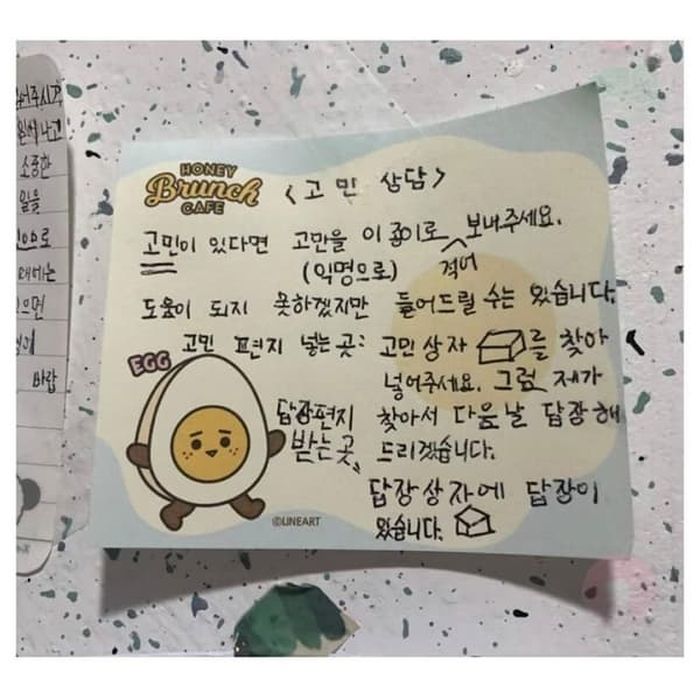 HONEY
Brunch
CAFE
<고민 상담>
고민이 있다면 고만을 이 종이로 보내주세요.
(익명으로) 적어
도움이 되지 못하겠지만 들어드릴 수는 있습니다.
고민 편지 넣는 곳: 고민상자 를 찾아
넣어주세요. 그럼 제가
EGG
답장편지 찾아서 다음날 답장해
받는 곳 드리겠습니다.
답장상자에 답장이
있습니다.
©LINEART
소중한
일을
으로
때에는
으면
바랍